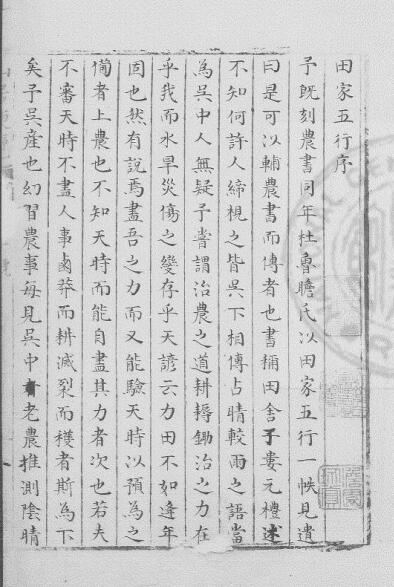 田家五行序
予既刻農書同年杜魯瞻氏以田家五行一帙見遺
曰是可以輔農書而傳者也書稱田舍子婁元禮述
不知何許人締視之皆吳下相傳占晴較雨之語當
為吳中人無疑予嘗謂治農之道耕耨鋤治之力在
乎我而水旱災傷之變存乎天諺云力田不如逢年
固也然有說焉盡吾之力而又能驗天時以預為之
備者上農也不知天時而能自盡其力者次也若夫
不審天時不盡人事鹵莽而耕滅裂而穫者斯為下
矣予吳産也幻習農事每見吳中老農推測陰晴